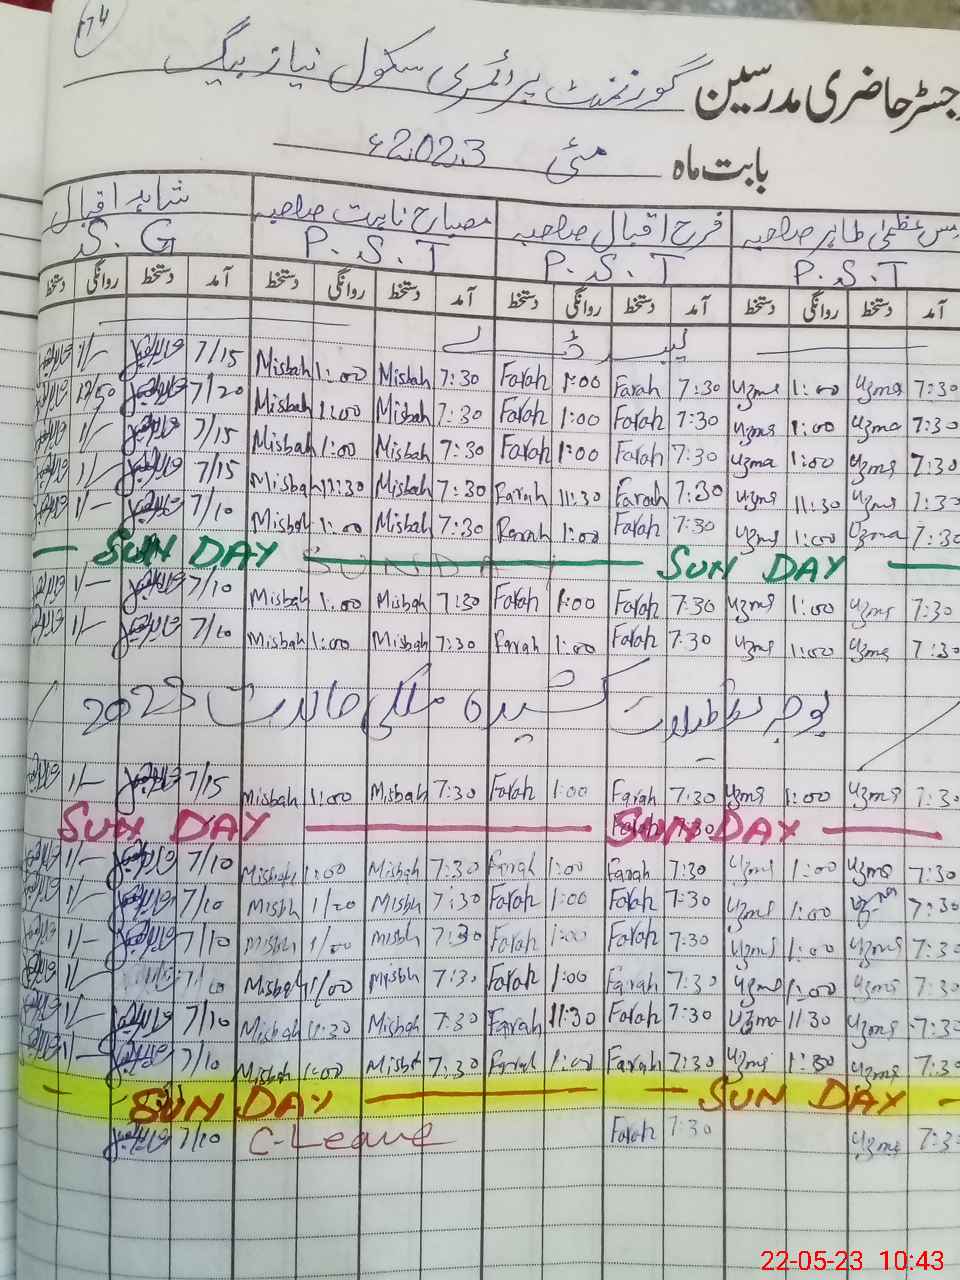 74
رجسٹر حاضری مدرسین گورنمنٹ پرائمری سکول نیاز بیگ
بابت ماہ مئی 2023ء
مس عظمیٰ طاہر صاحبہ فرح اقبال صاحبہ مصباح ثابت صاحبہ شاہد اقبال
P.S.T P.S.T P.S.T S.G
آمد دستخط روانگی دستخط آمد دستخط روانگی دستخط آمد دستخط روانگی دستخط آمد دستخط روانگی دستخط
لیبر ڈے
1/- 7/15 Misbah 1:00 Misbah 7:30 Farah 1:00 Farah 7:30 Uzma 1:00 Uzma 7:30
12/50 7/20 Misbah 1:00 Misbah 7:30 Farah 1:00 Farah 7:30 Uzma 1:00 Uzma 7:30
1/- 7/15 Misbah 1:00 Misbah 7:30 Farah 1:00 Farah 7:30 Uzma 1:00 Uzma 7:30
1/- 7/15 Misbah 11:30 Misbah 7:30 Farah 11:30 Farah 7:30 Uzma 11:30 Uzma 7:30
1/- 7/10 Misbah 1:00 Misbah 7:30 1:00 Farah 7:30 Uzma 1:00 Uzma 7:30
SUN DAY SUNDAY SUN DAY
1/- 7/10 Misbah 1:00 Misbah 7:30 Farah 1:00 Farah 7:30 Uzma 1:00 Uzma 7:30
1/- 7/10 Misbah 1:00 Misbah 7:30 Farah 1:00 Farah 7:30 Uzma 1:00 Uzma 7:30
بوجہ تعطیلات کشیدہ ملکی حالات 2023
1/- 7/15 Misbah 1:00 Misbah 7:30 Farah 1:00 Farah 7:30 Uzma 1:00 Uzma 7:30
SUN DAY SUN DAY
1/- 7/10 Misbah 1:00 Misbah 7:30 Farah 1:00 Farah 7:30 Uzma 1:00 Uzma 7:30
1/- 7/10 Misbh 1/20 Misbh 7:30 Farah 1:00 Farah 7:30 Uzma 1:00 7:30
1/- 7/10 Misbh 1/00 Misbh 7:30 Farah 1:00 Farah 7:30 Uzma 1:00 Uzma 7:30
1/- 7/10 Misbah 1/00 Misbh 7:30 Farah 1:00 Farah 7:30 Uzma 1:00 Uzma 7:30
1/- 7/10 Misbah 11:30 Misbah 7:30 Farah 11:30 Farah 7:30 Uzma 11:30 Uzma 7:30
1/- 7/10 Misbah 1:00 Misbah 7:30 Farah 1:00 Farah 7:30 Uzma 1:00 Uzma 7:30
SUN DAY SUN DAY
7/10 C-Leave Farah 7:30 Uzma 7:3
22-05-23 10:43